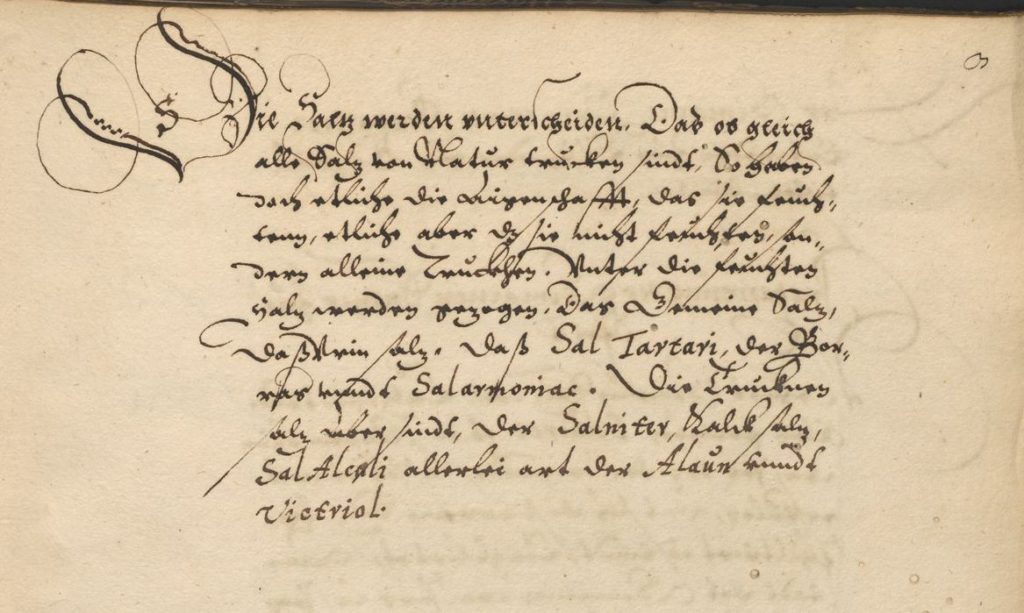 3
Die Saltz werden vnterscheiden. Das ob gleich
alle Saltz von Natur trucken sindt, So haben
doch etliche die Eigenschafft, das sie feuch-
tenn, etliche aber dz sie nicht feuchtes, son-
dern alleine Truckhen. Vnter die feuchten
Saltz werden gezogen. Das Gemeine Saltz,
Daß Vrin saltz. daß Sal Tartari, der Bor-
ras vnndt Salarmoniac. Die Trucknen
saltz aber sindt, der Salniter, Kalck saltz,
Sal Alcali allerlei art der Alaun vnndt
Victriol.